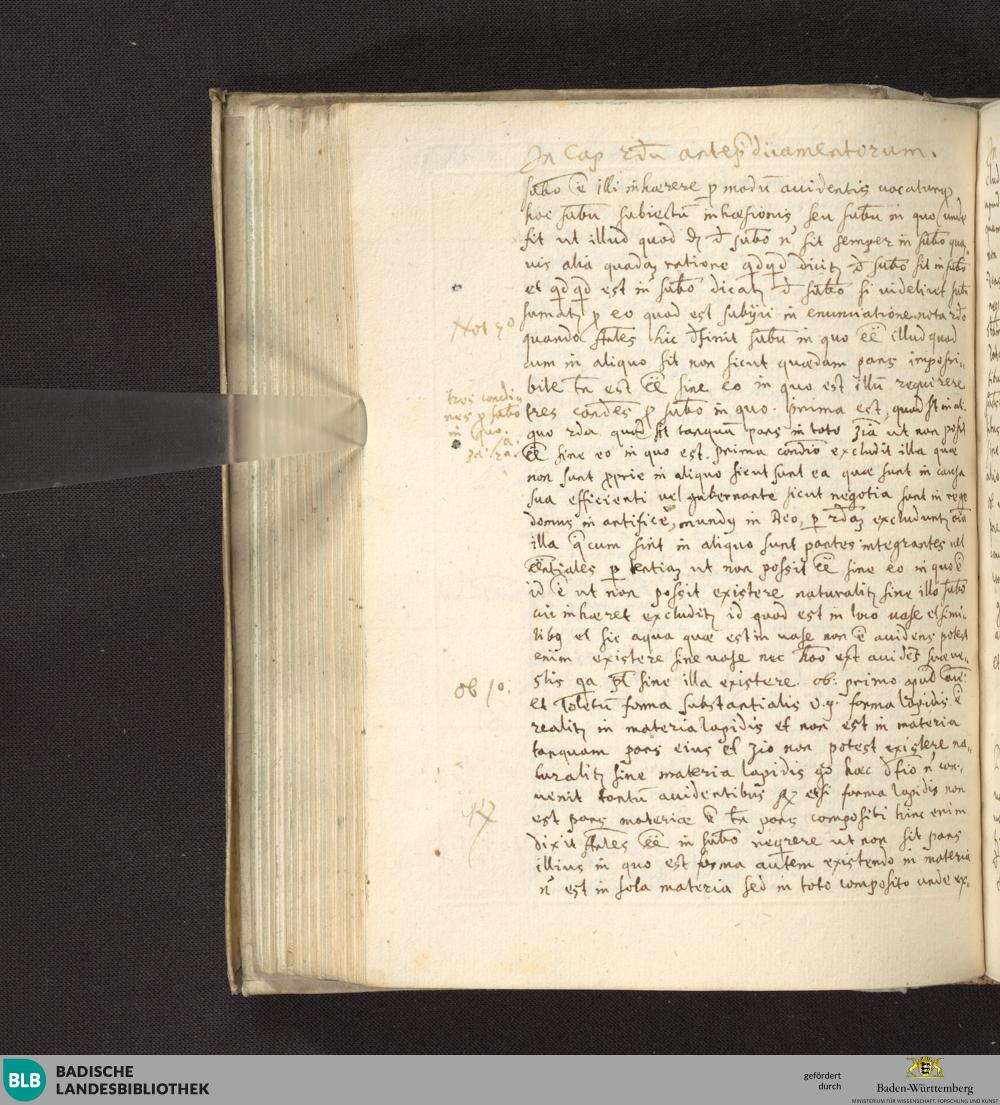 In Cap 2du antep̃diuamentorum.
su̅bo ẽ illi inhærere p modũ accidentis vocaturq̃
hoc su̅bu̅ subiectũ inhæsionis seu su̅bu̅ in quo unde
fit ut illud quod d su̅bo n̕ sit semper in su̅bo qua
vis alia quadaʒ ratione qdqd dicitʒ d su̅bo sit in su̅bo
et qdqd est in su̅bo dicatʒ d su̅bo si videlicet su̅bu̅
sumatʒ p eo quod est subijci in enunciatione nota 2do
Not 2o
quando Ar̃les hic d̃finit su̅bu̅ in quo ẽẽ illud quod
cum in aliquo sit non sicut quædam pars impossi,,
bile tñ est ẽẽ sine eo in quo est illũ requirere
tres condi
nes p su̅bo
in quo.
tres condẽs p su̅bo in quo. prima est, quod sit in ali
quo 2da quod sit tanquã pars in toto 3ia ut non possit
ẽẽ sine eo in quo est. prima condio excludit illa quæ
non sunt pprie in aliquo sicut sunt ea quæ sunt in causa
sua efficienti vel gubernante sicut negotia sunt in rege
domus in artifice, mundq in Deo, p 2daʒ excluduntʒ oĩa
illa q̃ cum sint in aliquo sunt partes integrantes vel
ẽẽntiales p tertiaʒ ut non possit ẽẽ sine eo in quo ẽ
id ẽ ut non possit existere naturalitʒ sine illo su̅bo
cui inhæret excluditʒ id quod est in loco vase et simi,,
libq et sic aqua quæ est in vase non ẽ accidens potest
enim existere sine vase nec ho̅o est accidẽs suæ ve,,
stis qa pt̃ sine illa existere. ob. primo apud
ob 1o.
et Toletũ forma substantialis v.g. forma lapidis ẽ
realitʒ in materia lapidis et non est in materia
tanquam pars eius et 3io non potest existere na,,
turalitʒ sine materia lapidis go hæc d̃fio n̕ con,,
uenit tantũ accidentibus R etsi forma lapidis non
R
est pars materiæ ẽ tñ pars compositi hinc enim
dixit Ar̃les ẽẽ in su̅bo reqrere ut non sit pars
illius in quo est forma autem existendo in materia
n̕ est in sola materia sed in toto composito unde ex,,
BLB BADISCHE
LANDESBIBLIOTHEK
gefördert
durch
Baden-Württemberg
MINISTERIUM FÜR WISSENSCHAFT, FORSCHUNG UND KUNST